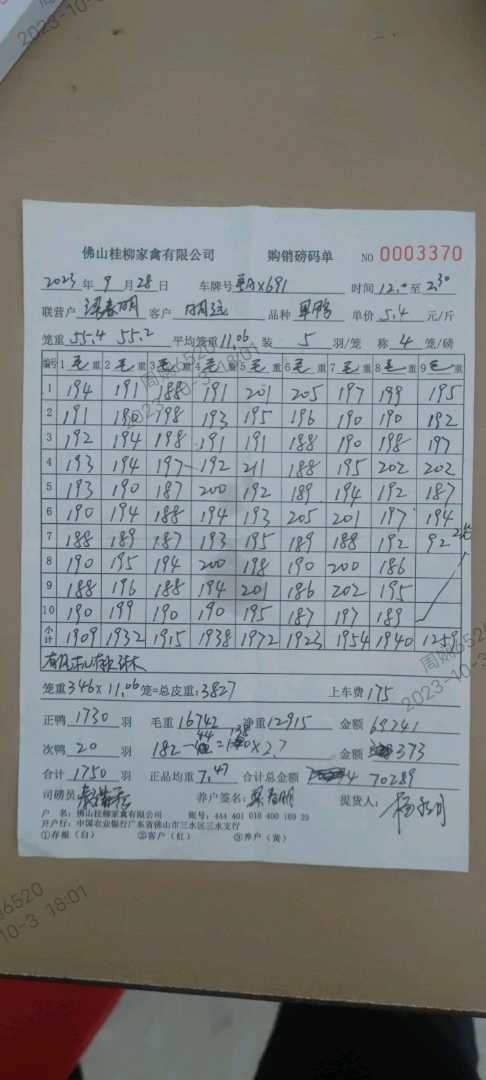 佛山桂柳家禽有限公司 购销磅码单 NO 0003370
2023年9月28日 车牌号 X691 时间 12.0 至 2.30
联营户 梁春明 客户 明远 品种 单价 5.4 元/斤
笼重 55.4 55.2 平均笼重 11.06 装 5 羽/笼 称 4 笼/磅
编号 1毛重 2毛重 3毛重 4毛重 5毛重 6毛重 7毛重 8毛重 9毛重
1 194 191 188 191 201 205 197 199 195
2 191 190 198 193 195 196 190 190 192
3 192 194 198 191 191 188 190 198 197
4 193 194 197 192 211 188 195 202 202
5 193 190 187 200 192 189 194 192 187
6 190 194 188 194 193 205 201 197 194
7 188 189 187 193 195 189 188 192 92 2笼
8 190 195 194 200 198 190 200 186
9 188 196 188 194 201 186 202 195
10 190 199 190 190 195 187 197 189
小计 1909 1932 1915 1938 1972 1923 1954 1940 1259
笼重 346 X 11.06 笼=总皮重: 3827 上车费 175
正鸭 1730 羽 毛重 16742 净重 12915 金额 69741
次鸭 20 羽 182-44=138 X 2.7 金额 373
合计 1750 羽 正品均重 7.47 合计总金额 70289
司磅员 养户签名: 梁春明 提货人:
户 名: 佛山桂柳家禽有限公司 账号: 444 401 010 400 169 23
开户行: 中国农业银行广东省佛山市三水区三水支行
①存根(白) ②客户(红) ③养户(黄)
2023-10-3 18:01
6520
10-3 18:01